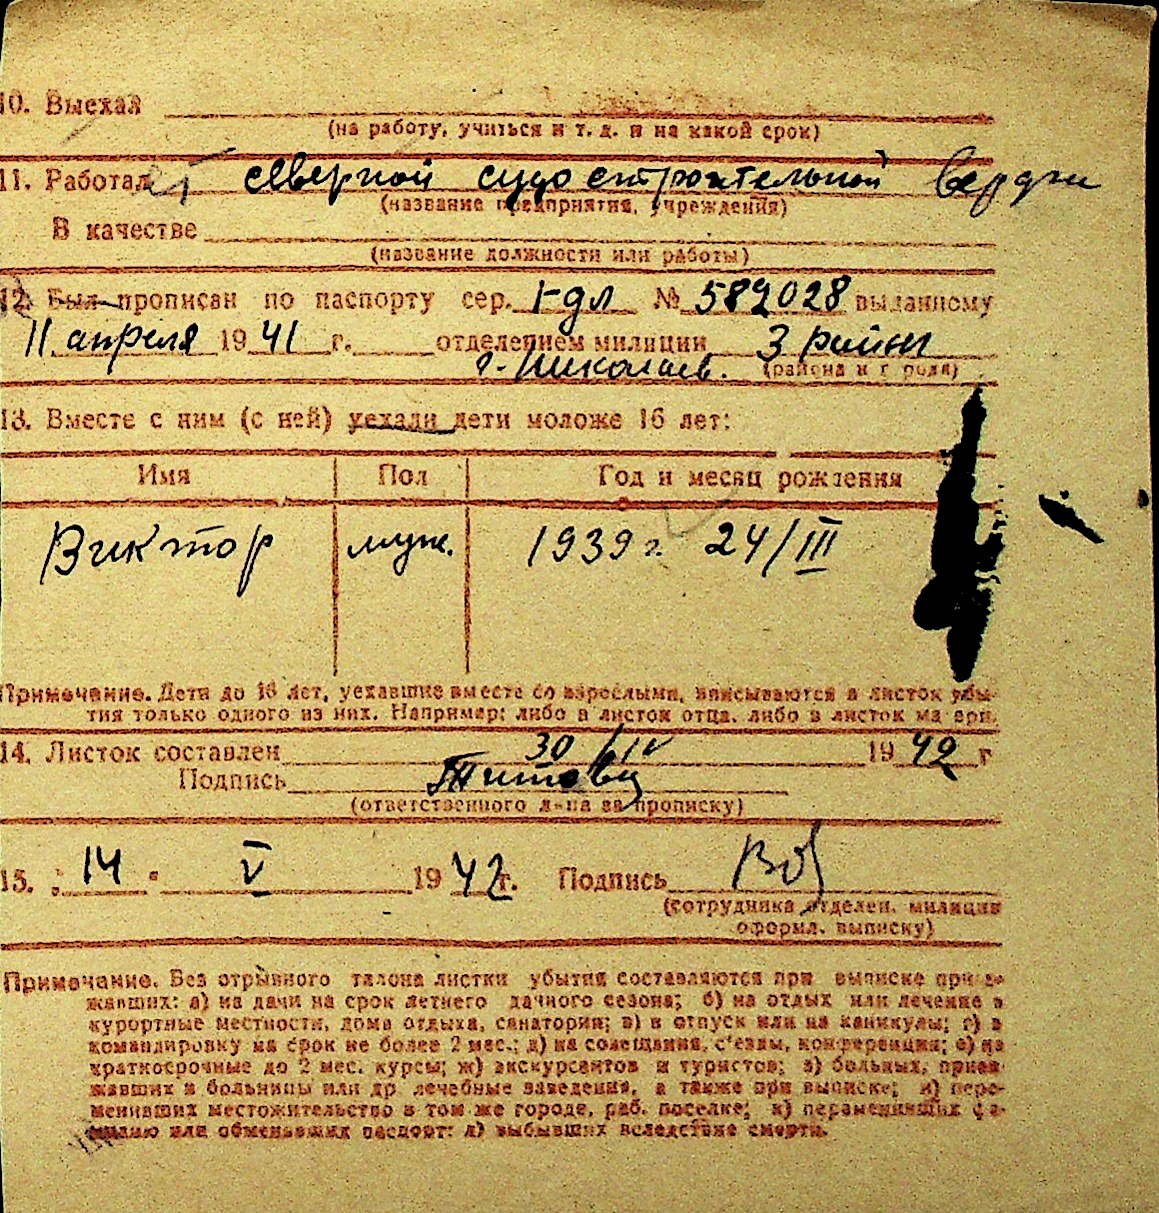 10. Выехал
(на работу, учиться и т. д. и на какой срок)
11. Работает северной судостроительной верфи
(название предприятия, учреждения)
В качестве
(название должности или работы)
12. Был прописан по паспорту сер. I-дл № 582028 выданному
11 апреля 1941 г. отделением милиции 3 района
г. Николаев. (района и города)
13. Вместе с ним (с ней) уехали дети моложе 16 лет:
Имя Пол Год и месяц рождения
Виктор муж. 1939 г. 24/III
Примечание. Дети до 16 лет, уехавшие вместе со взрослыми, вписываются в листок убы-
тия только одного из них. Например: либо в листок отца, либо в листок матери.
14. Листок составлен 30/IV 1942 г
Подпись
(ответственного л-ца за прописку)
15. "14" V 1942 г. Подпись
(сотрудника отделен. милиции
оформл. выписку)
Примечание. Без отрывного талона листки убытия составляются при выписке приез-
жавших: а) на дачи на срок летнего дачного сезона; б) на отдых или лечение в
курортные местности, дома отдыха, санатории; в) в отпуск или на каникулы; г) в
командировку на срок не более 2 мес.; д) на совещания, с'езды, конференции; е) на
краткосрочные до 2 мес. курсы; ж) экскурсантов и туристов; з) больных, приез-
жавших в больницы или др лечебные заведения, а также при выписке; и) пере-
менивших местожительство в том же городе, раб. поселке; к) переменивших фа-
милию или обменявших паспорт; л) выбывших вследствие смерти.